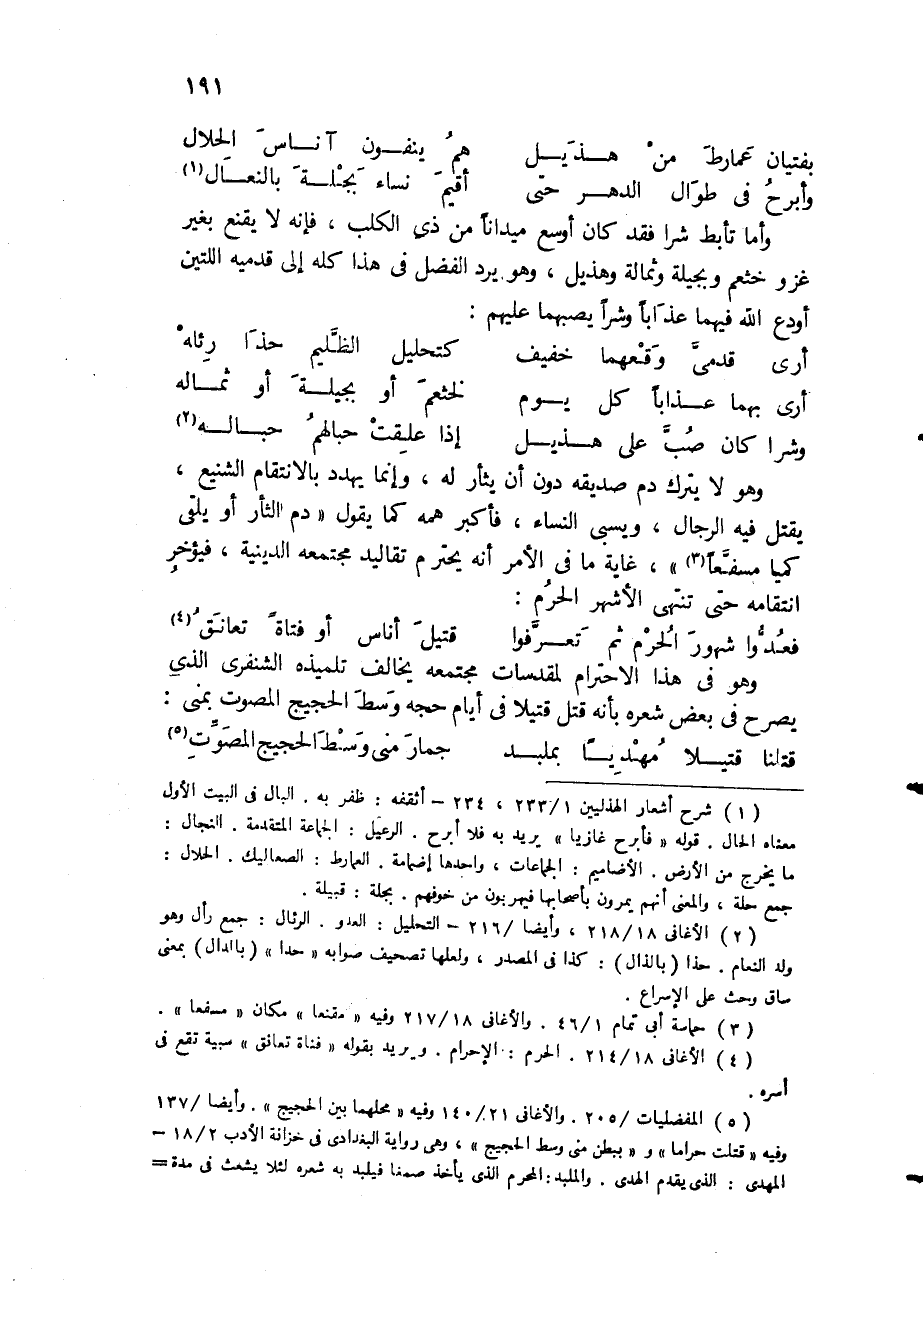 ١٩١
بفتيان عَمارطَ منْ هـذَيـل همُ ينفـون آناسَ الحلال
وأبرحُ فى طوَال الدهـر حتى أقيمَ نساء بَجْلـةَ بالنعـَال(١)
وأما تأبط شرا فقد كان أوسع ميداناً من ذي الكلب ، فإنه لا يقنع بغير
غزو خثعم وبجيلة وثمالة وهذيل ، وهو يرد الفضل فى هذا كله إلى قدميه اللتين
أودع الله فيهما عذاباً وشراً يصبهما عليهم :
أرى قدمىَّ وَقْعهما خفيف كتحليل الظَّليم حذَا رِئاله
أرى بهما عـذاباً كل يـوم لخثعمَ أو بجيلـةَ أو ثمـاله
وشرا كان صُبَّ على هـذيـل إذا علِقتْ حبالهمُ حبـالـه(٢)
وهو لا يترك دم صديقه دون أن يثأر له ، وإنما يهدد بالانتقام الشنيع ،
يقتل فيه الرجال ، ويسبى النساء ، فأكبر همه كما يقول « دم الثأر أو يلقى
كميا مسفعَّاً(٣) » ، غاية ما فى الأمر أنه يحترم تقاليد مجتمعه الدينية ، فيؤخر
انتقامه حتى تنتهى الأشهر الحرُم :
فعُدُّوا شهورَ الحُرْم ثم تَعـرَّفوا قتيلَ أناس أو فتاةً تعانَقُ(٤)
وهو فى هذا الاحترام لمقدسات مجتمعه يخالف تلميذه الشنفرى الذي
يصرح فى بعض شعره بأنه قتل قتيلا فى أيام حجه وَسطَ الحجيج المصوت بمنى :
قتلنا قتيـلا مُهْدِيـًا بملبد جمارَ منى وَسْطَ الحجيج المصَوَّتِ(٥)
(١) شرح أشعار الهذليين ٢٣٣/١ ، ٢٣٤ – أثقفه : ظفر به . البال فى البيت الأول
معناه الحال . قوله « فأبرح غازيا » يريد به فلا أبرح . الرعيل : الجماعة المتقدمة . النجال :
ما يخرج من الأرض . الأضاميم : الجماعات ، واحدها إضمامة . العمارط : الصعاليك . الحلال :
جمع حلة ، والمعنى أنهم يمرون بأصحابها فيهربون من خوفهم . بجلة : قبيلة .
(٢) الأغانى ٢١٨/١٨ ، وأيضا /٢١٦ – التحليل : العدو . الرئال : جمع رأل وهو
ولد النعام . حذا (بالذال) : كذا فى المصدر ، ولعلها تصحيف صوابه « حدا » (بالدال) بمعنى
ساق وحث على الإسراع .
(٣) حماسة أبى تمام ٤٦/١ . والأغانى ٢١٧/١٨ وفيه « مقنعا » مكان « مسفعا » .
(٤) الأغانى ٢١٤/١٨ . الحرم : الإحرام . ويريد بقوله « فتاة تعانق » سبية تقع فى
أسره .
(٥) المفضليات /٢٠٥ . والأغانى ١٤٠/٢١ وفيه « محلهما بين الحجيج » . وأيضا /١٣٧
وفيه « قتلت حراما » و « ببطن منى وسط الحجيج » ، وهى رواية البغدادى فى خزانة الأدب ١٨/٢ –
المهدى : الذى يقدم الهدى . والملبد : المحرم الذى يأخذ صمغا فيلبد به شعره لئلا يشعث فى مدة =